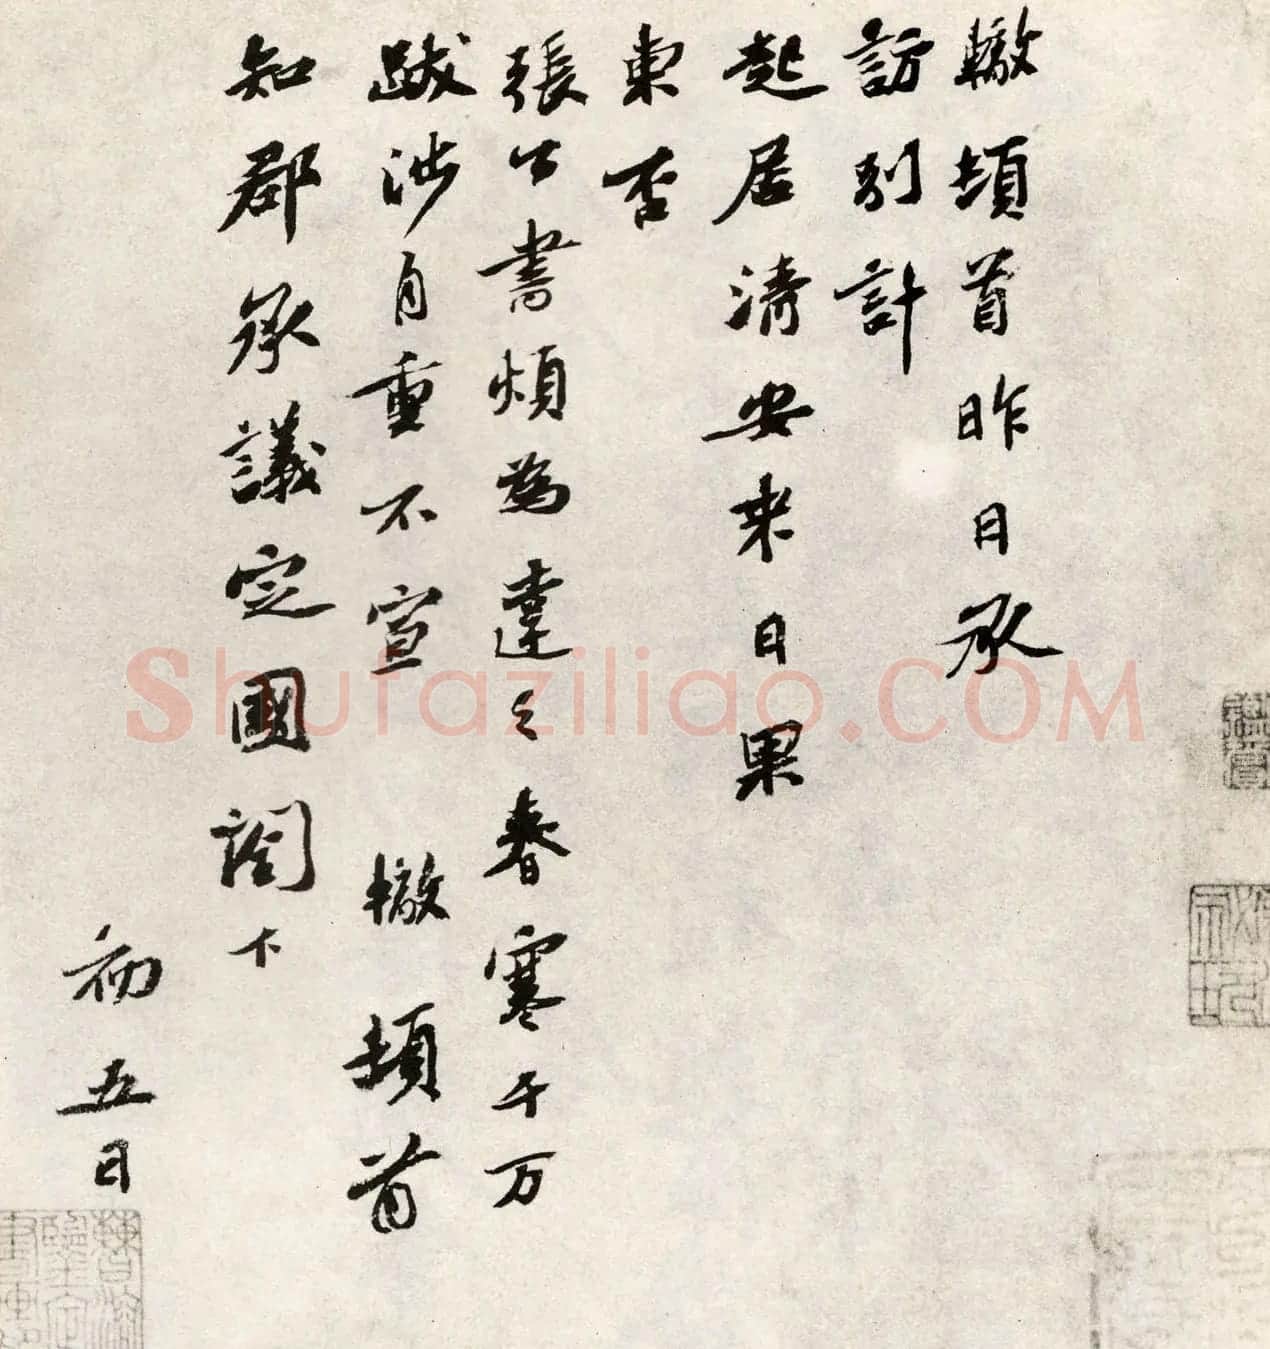 轍頓首昨日承
訪别計
起居清安来日果
東否
張公書煩為達之春寒千万
跋涉自重不宣 轍頓首
知郡承議定國閤下
初五日
Shufaziliao.COM